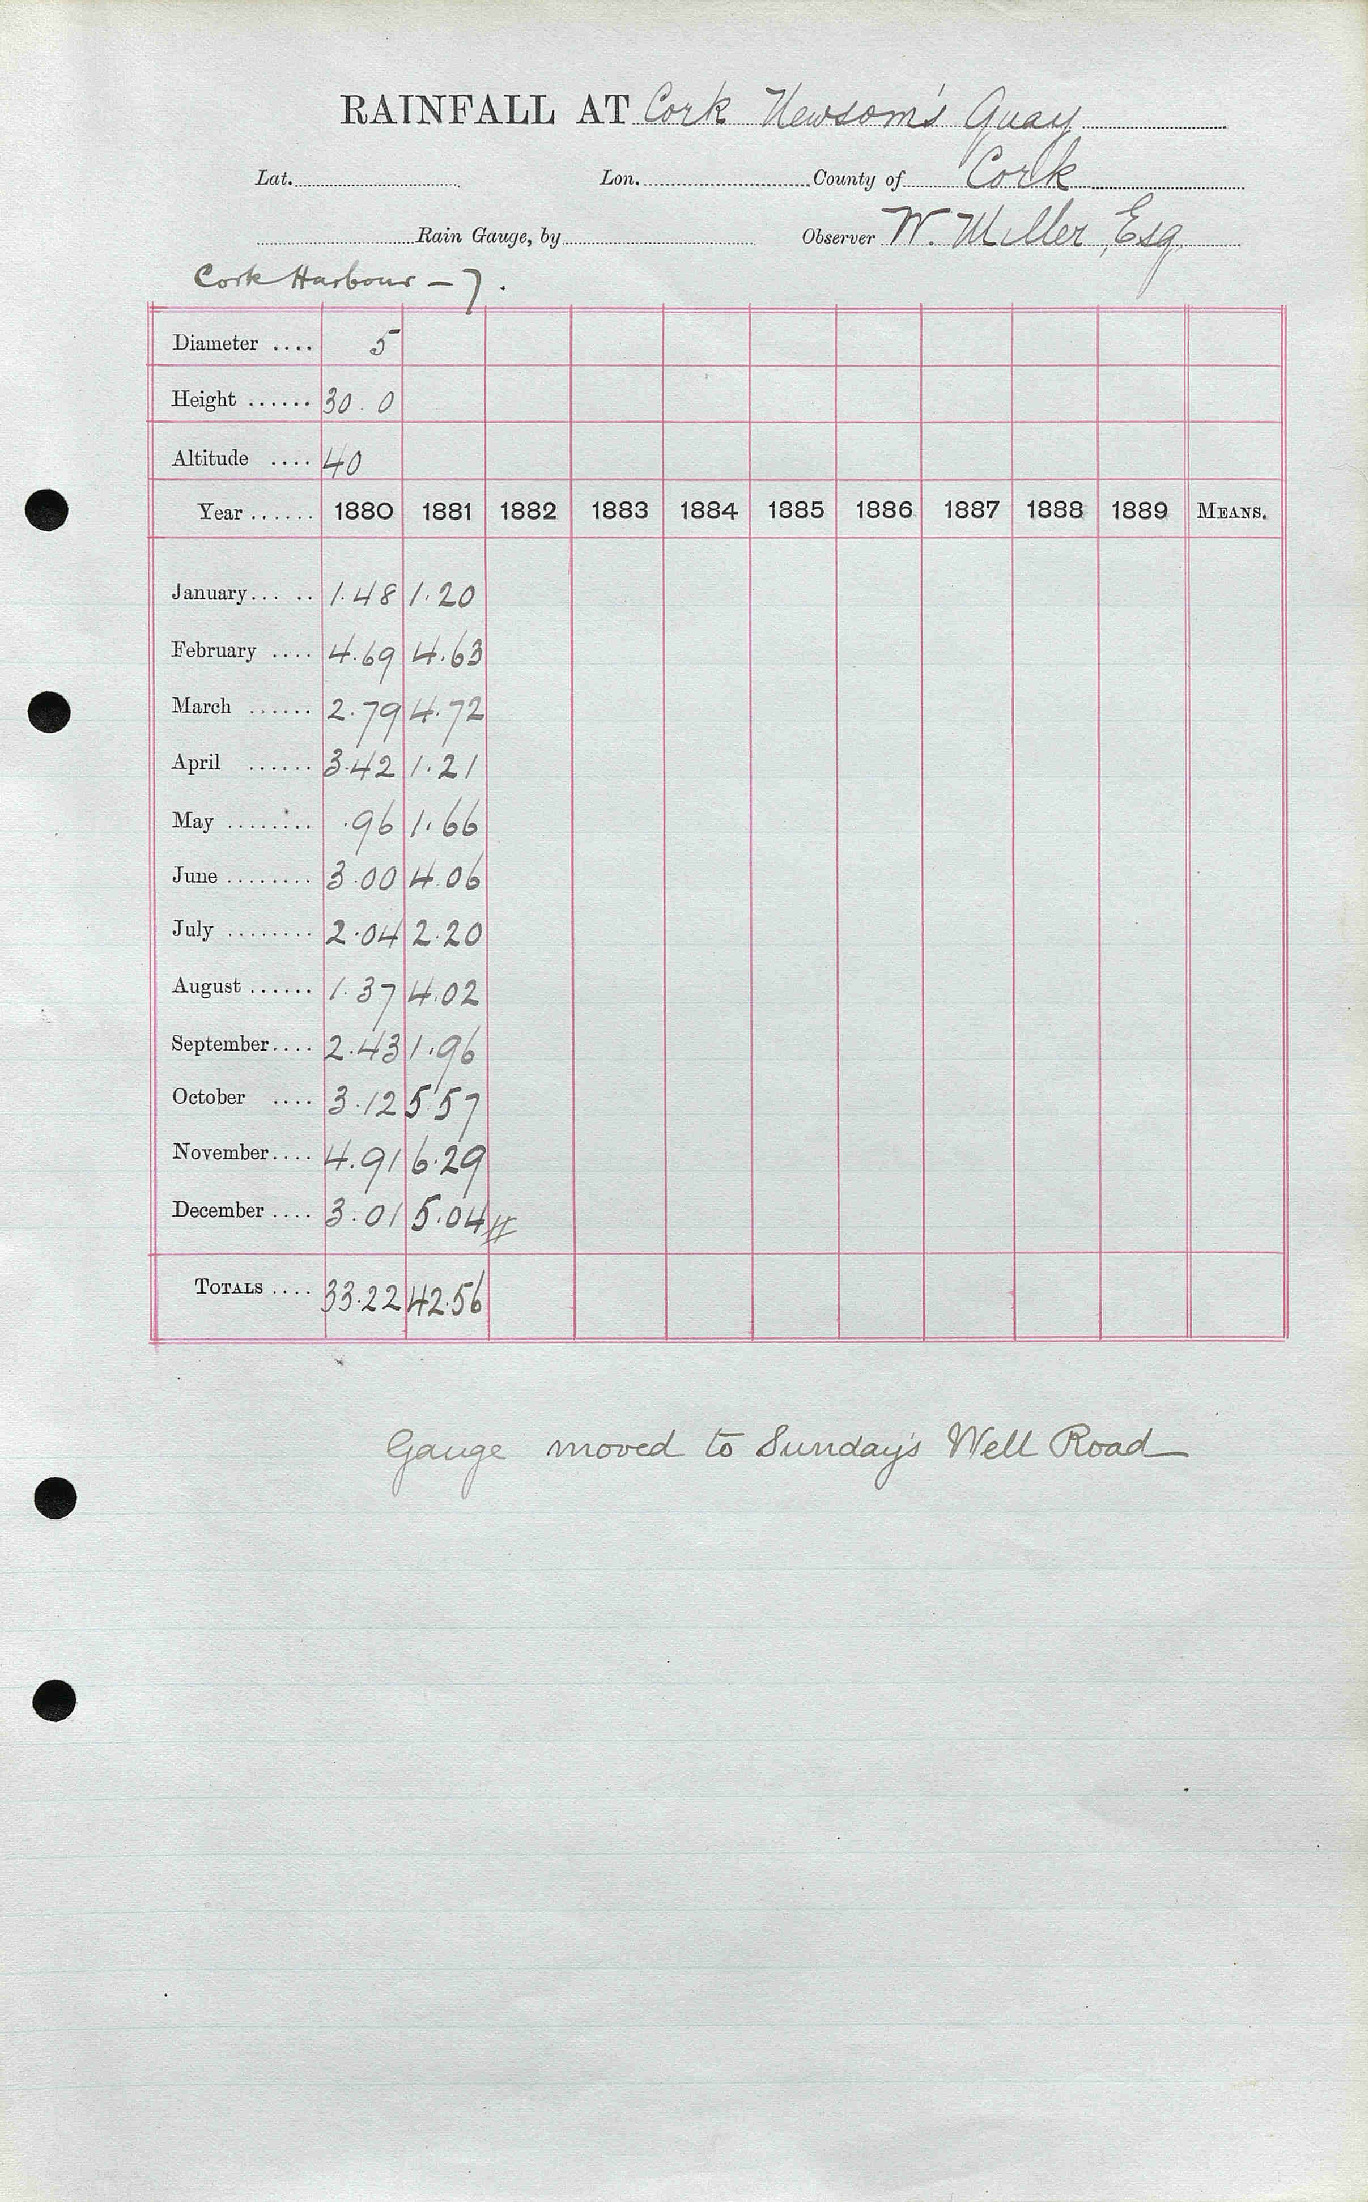 RAINFALL AT Cork Newsom's Quay
Lat. Lon. County of Cork
Rain Gauge, by Observer W. Miller, Esq
Cork Harbour - 7.
Diameter .... 5
Height ...... 30.0
Altitude .... 40
Year ...... 1880 1881 1882 1883 1884 1885 1886 1887 1888 1889 MEANS.
January... .. 1.48 1.20
February .... 4.69 4.63
March ...... 2.79 4.72
April ...... 3.42 1.21
May ........ .96 1.66
June ........ 3.00 4.06
July ........ 2.04 2.20
August ...... 1.37 4.02
September.... 2.43 1.96
October .... 3.12 5.57
November.... 4.91 6.29
December .... 3.01 5.04
TOTALS .... 33.22 42.56
Gauge moved to Sunday's Well Road